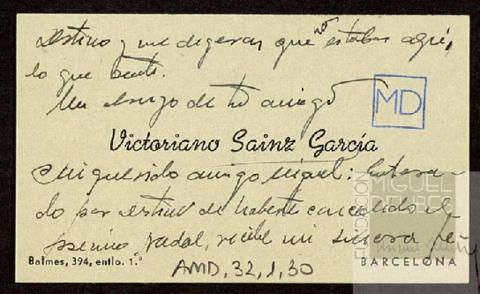 Destino y me digeron que no estabas aquí,
lo que sentí.
Un abrazo de tu amigo
MD
Victoriano Sainz García
Mi querido amigo Miguel: Entera-
do por Destino de haberte concedido el
premio Nadal, recibe mi sincera
Balmes, 394, entlo. 1.º
BARCELONA
AMD, 32, 1, 30
MIGUEL